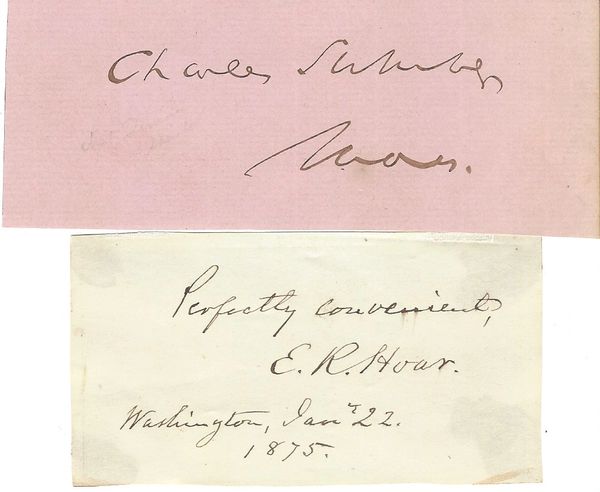 Charles Sumner
Mass.
Perfectly convenient,
E. R. Hoar.
Washington, Jan.y 22.
1875.